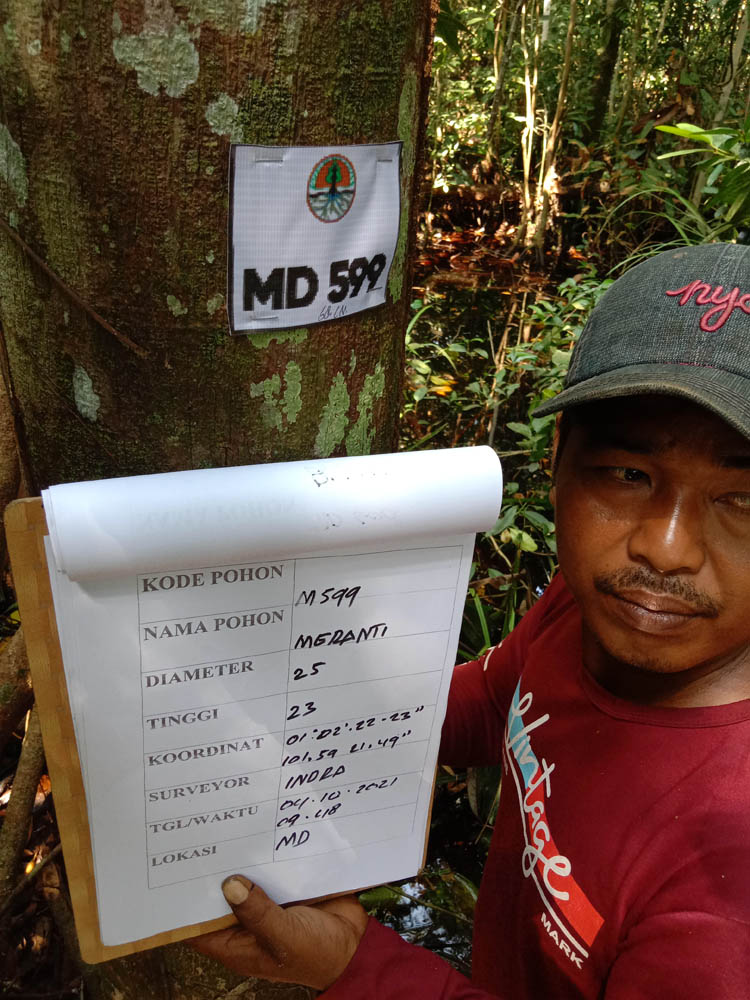 MD 599
nyc
KODE POHON M599
NAMA POHON MERANTI
DIAMETER 25
TINGGI 23
KOORDINAT 01°02'.22-23"
101.59 21.49"
SURVEYOR INDRA
TGL/WAKTU 04.10.2021
09.48
LOKASI MD
Vintage
MARK